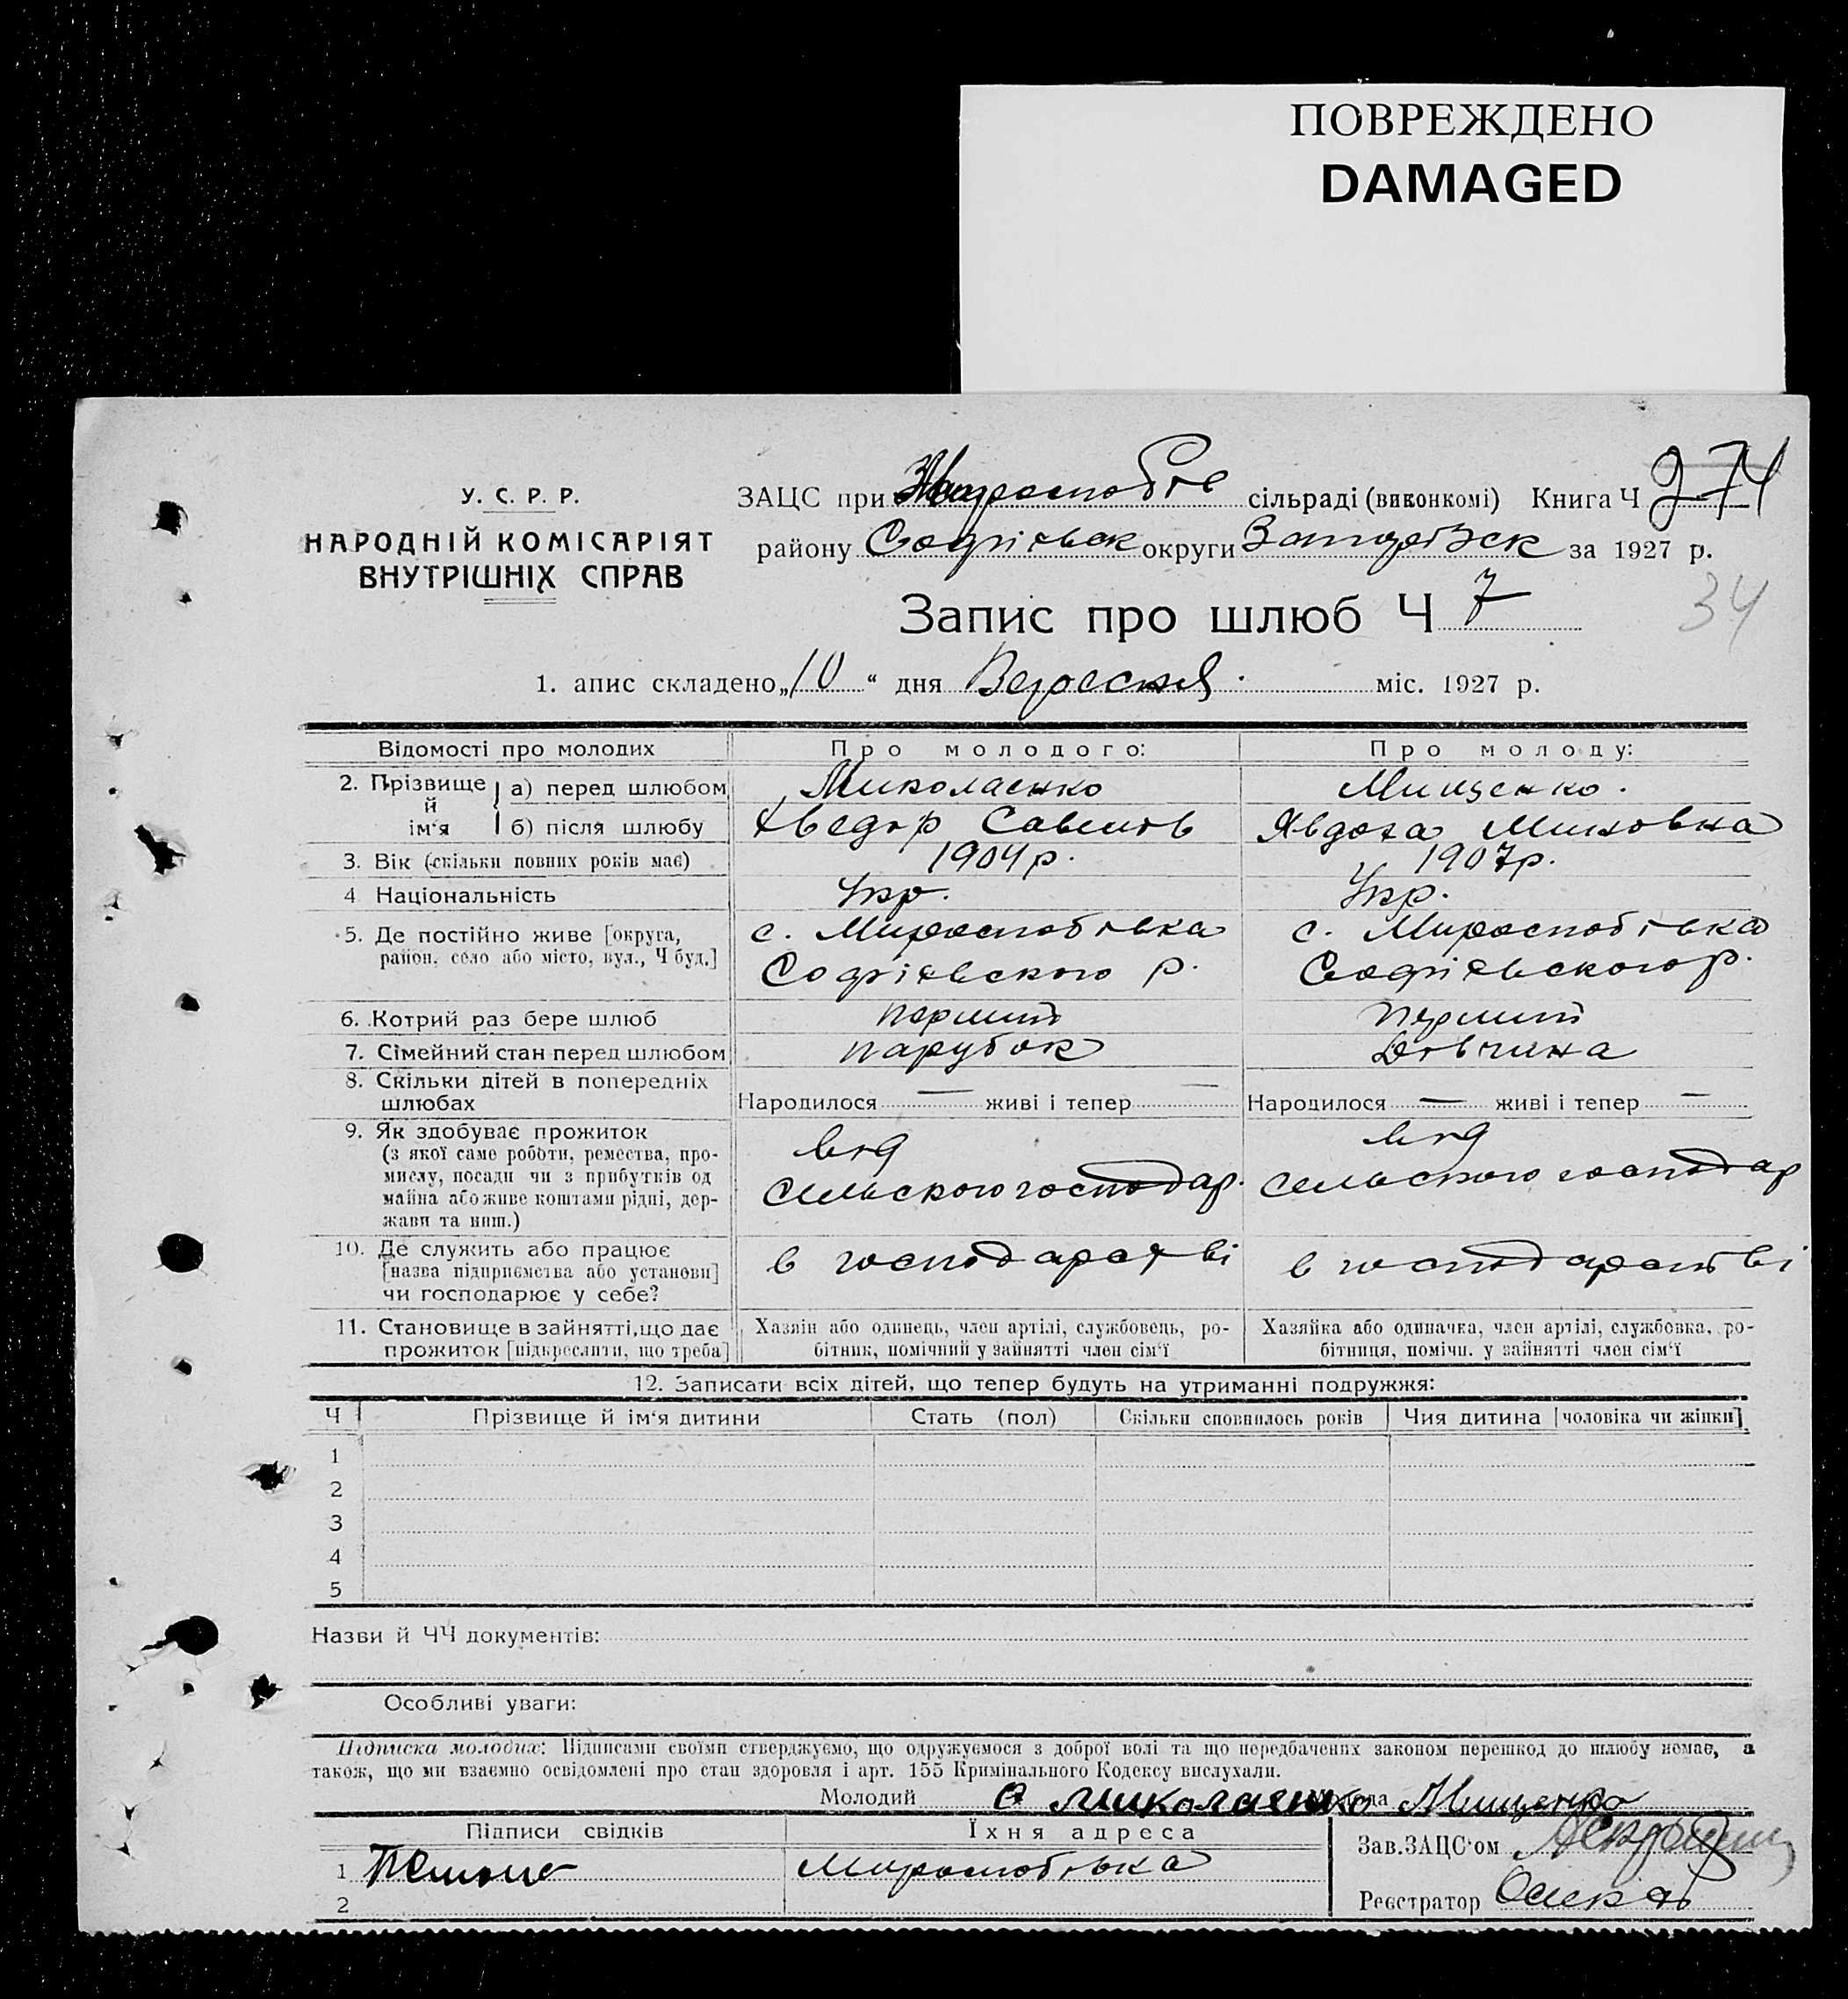 ПОВРЕЖДЕНО
DAMAGED
У. С. Р. Р.
НАРОДНІЙ КОМІСАРІЯТ
ВНУТРІШНІХ СПРАВ
ЗАЦС при сільраді (виконкомі) Книга Ч 274
району Софіївськ округи за 1927 р.
Запис про шлюб Ч 7
34
1. апис складено „10“ дня Вересня міс. 1927 р.
Відомості про молодих Про молодого: Про молоду:
2. Прізвище й ім'я а) перед шлюбом Миколаенко Мищенко.
б) після шлюбу Хведір Савелів Явдоха
3. Вік (скільки повних років має) 1904 р. 1907 р.
4 Національність Укр. Укр.
5. Де постійно живе [округа, с. Миролюбівка с. Миролюбівка
район, село або місто, вул., Ч буд.] Софіївського р. Софіївського р.
6. Котрий раз бере шлюб перший перший
7. Сімейний стан перед шлюбом парубок Дівчина
8. Скільки дітей в попередніх
шлюбах Народилося — живі і тепер — Народилося — живі і тепер —
9. Як здобуває прожиток від від
(з якої саме роботи, ремества, про-
мислу, посади чи з прибутків од сельского господар. сельского господар
майна або живе коштами рідні, дер-
жави та инш.)
10. Де служить або працює в господарстві в господарстві
[назва підприємства або установи]
чи господарює у себе?
11. Становище в занятті, що дає Хазяїн або одинець, член артілі, службовець, ро- Хазяйка або одиначка, член артілі, службовка, ро-
прожиток [підкреслити, що треба] бітник, помічний у занятті член сім'ї бітниця, помічн. у занятті член сім'ї
12. Записати всіх дітей, що тепер будуть на утриманні подружжя:
Ч Прізвище й ім'я дитини Стать (пол) Скільки сповнилось років Чия дитина [чоловіка чи жінки]
1
2
3
4
5
Назви й ЧЧ документів:
Особливі уваги:
Підписка молодих: Підписами своїми стверджуємо, що одружуємося з доброї волі та що передбачених законом перешкод до шлюбу немає, а
також, що ми взаємно освідомлені про стан здоровля і арт. 155 Кримінального Кодексу вислухали.
Молодий Миколаенко Мищенко
Підписи свідків Їхня адреса Зав. ЗАЦС'ом
1 Миролюбівка
2 Реєстратор